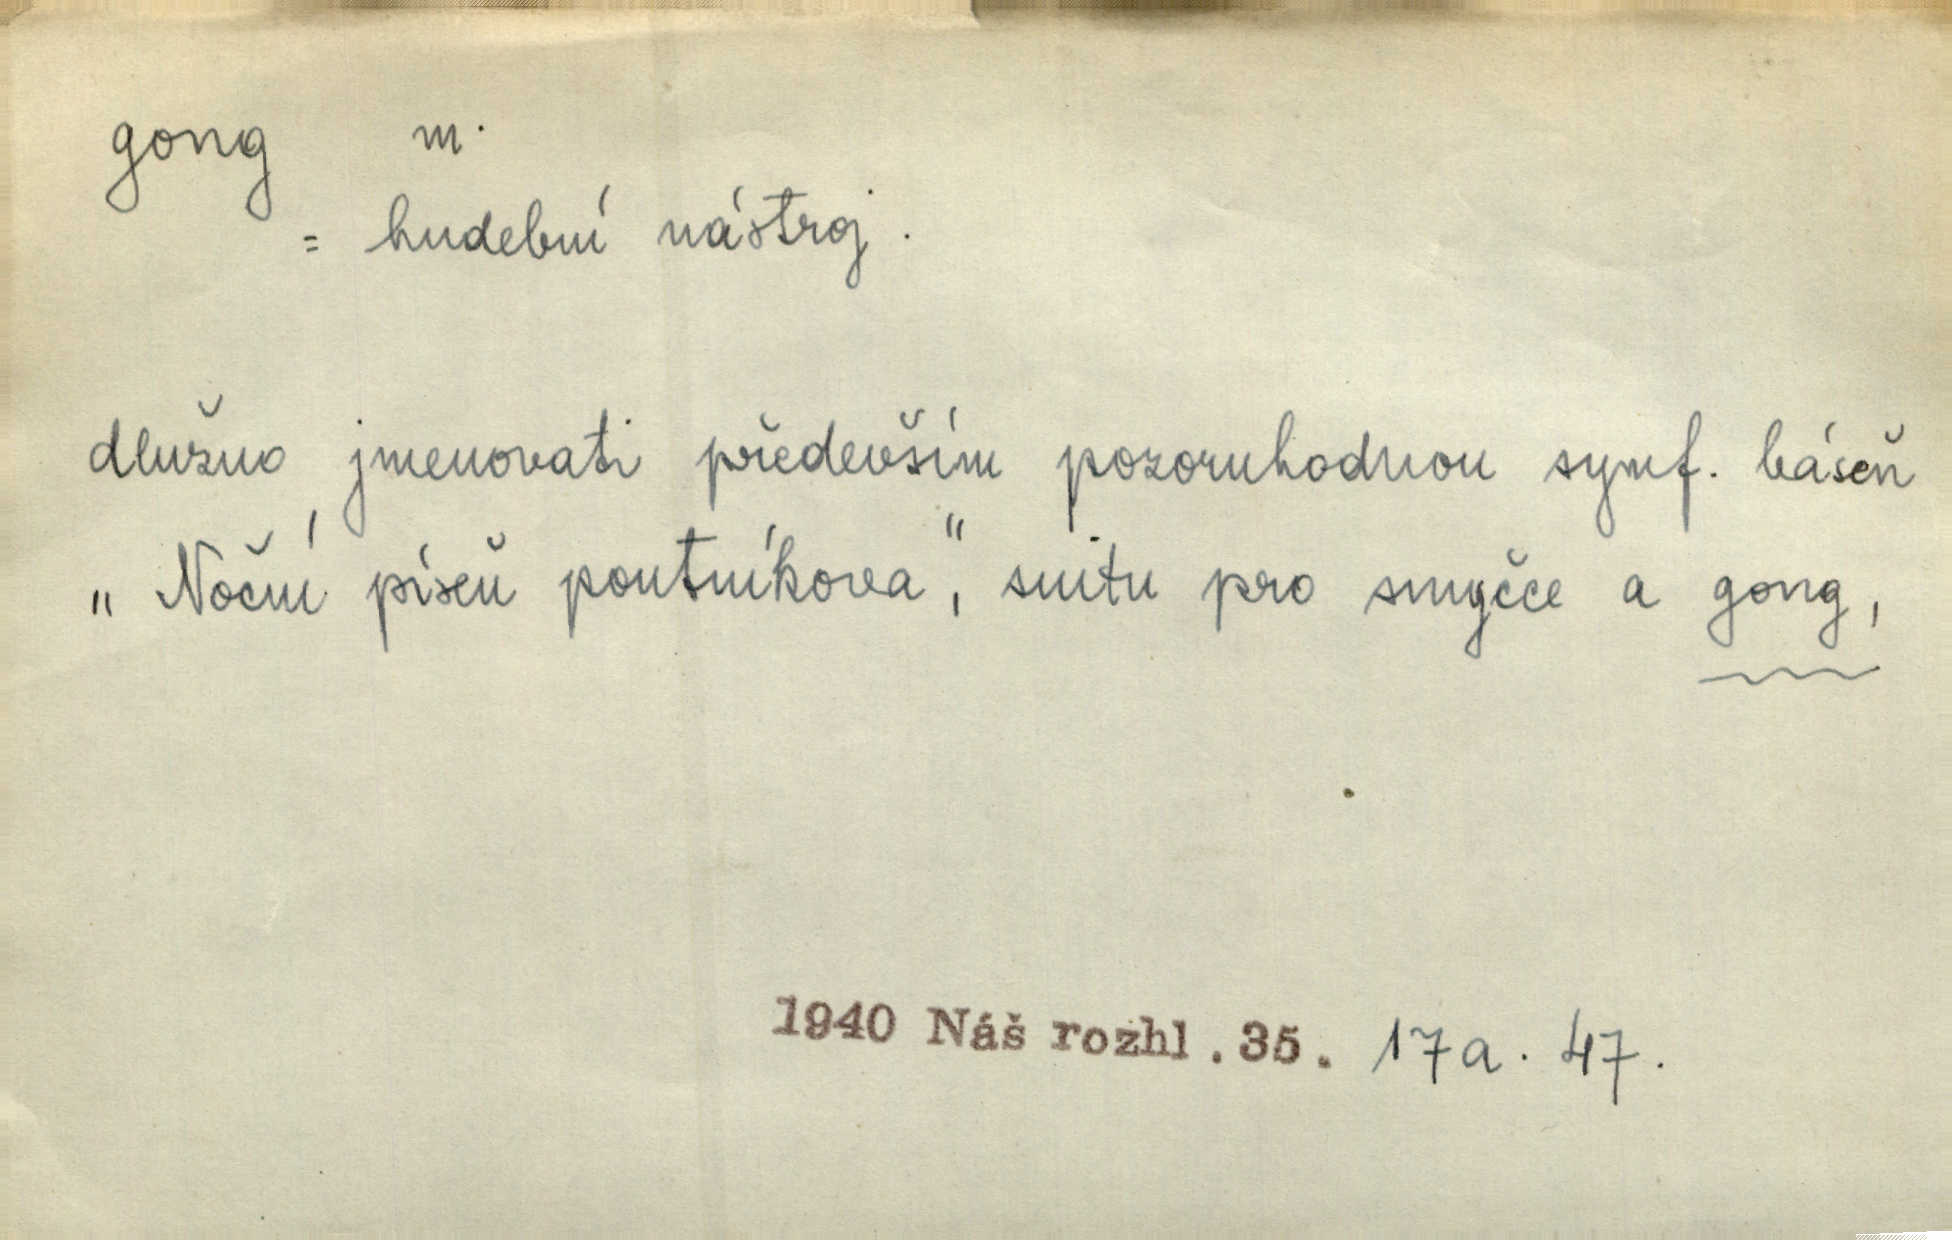 gong m.
= hudební nástroj.
dlužno jmenovati především pozoruhodnou symf. báseň
„Noční píseň poutníkova“, suitu pro smyčce a gong,
1940 Náš rozhl. 35. 17a. 47.